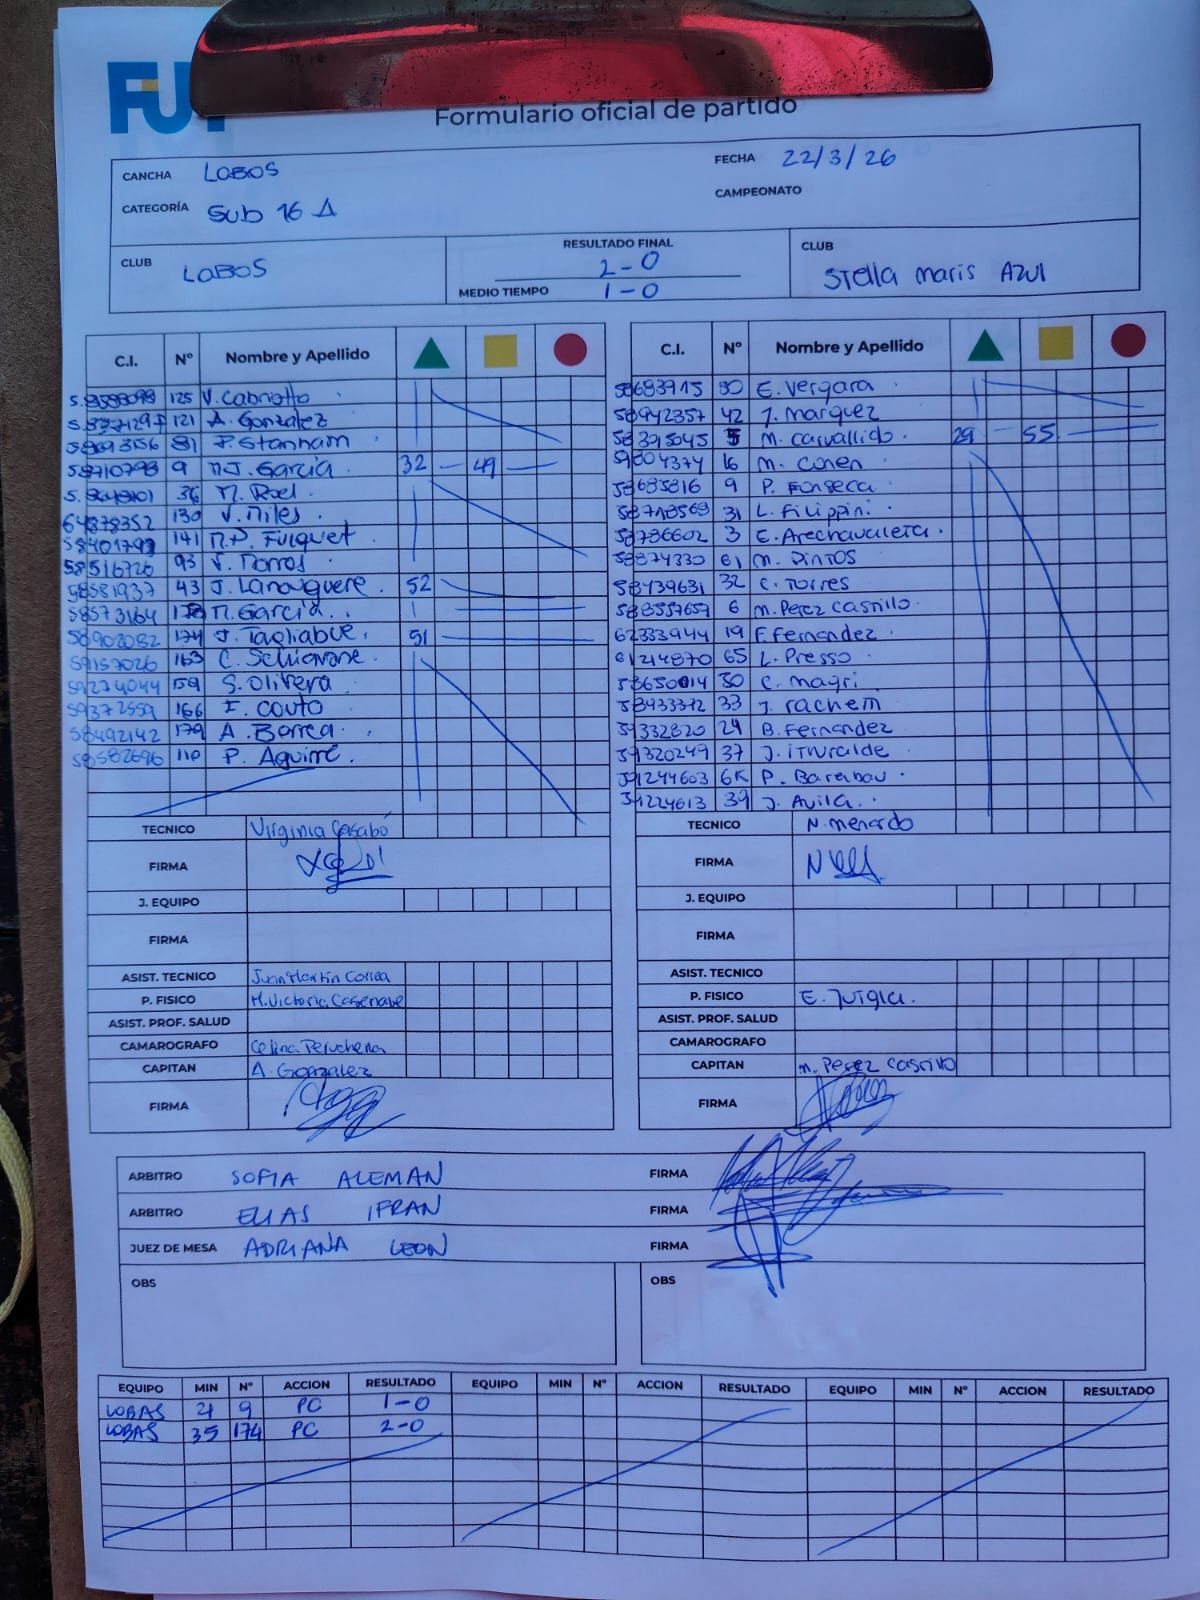 Formulario oficial de partido
CANCHA LOBOS FECHA 22/3/26
CATEGORÍA SUB 16 A CAMPEONATO
CLUB LOBOS RESULTADO FINAL 2-0 CLUB Stella maris AZUL
MEDIO TIEMPO 1-0
C.I. Nº Nombre y Apellido C.I. Nº Nombre y Apellido
125 V. Cabriotto 58683915 90 E. Vergara
121 A. Gonzalez 58942357 42 J. Marquez
81 P. Stanham 58395045 5 M. Carvallido 29 55
58710798 9 MJ. Garcia 32 49 59004374 16 M. Cohen
36 M. Roel 58685816 9 P. Fonseca
64878352 130 V. Miles 58718569 31 L. Filippini
141 M.P. Fuiquet 58786602 3 E. Arechavaleta
58516726 93 V. 58874330 61 M. Pintos
58581937 43 J. Lanouguere 52 58439631 32 C. Torres
58573164 M. Garcia 588557657 6 M. Perez Castillo
58902082 174 J. Tagliabue 51 62333944 19 F. Fernandez
59157026 163 C. Schiavone 61214870 65 L. Presso
59274044 159 S. Olivera 30 C. Magri
59372559 166 F. Couto 58933372 33 J. rachem
58492142 179 A. Barrea 59332820 24 B. Fernandez
58582696 110 P. Aguirre 59320249 37 J. iTurralde
59244603 6K P.
59224613 39 J. Avila
TECNICO Virginia Casabó TECNICO N. Menardo
FIRMA FIRMA
J. EQUIPO J. EQUIPO
FIRMA FIRMA
ASIST. TECNICO Juan Martin Correa ASIST. TECNICO
P. FISICO M. Victoria Casenave P. FISICO E. Turgia.
ASIST. PROF. SALUD ASIST. PROF. SALUD
CAMAROGRAFO Celina Peruchena CAMAROGRAFO
CAPITAN A. Gonzalez CAPITAN M. Perez Castillo
FIRMA FIRMA
ARBITRO SOFIA ALEMAN FIRMA
ARBITRO ELIAS IFRAN FIRMA
JUEZ DE MESA ADRIANA LEON FIRMA
OBS OBS
EQUIPO MIN Nº ACCION RESULTADO EQUIPO MIN Nº ACCION RESULTADO EQUIPO MIN Nº ACCION RESULTADO
LOBAS 21 9 PC 1-0
LOBAS 35 174 PC 2-0